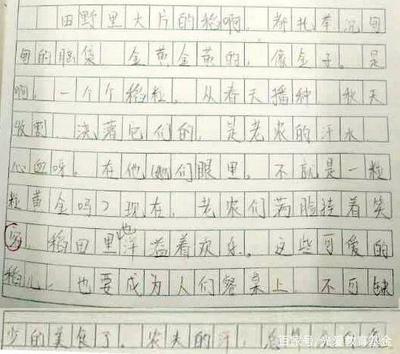 田野里大片的稻啊，都扎着沉甸
甸的脑袋，金黄金黄的，像金子。是
啊，一个个稻粒，从春天播种，秋天
收割，浇落它们的，是老农的汗水
心血呀。在他(她)们眼里，不就是一粒
粒黄金吗？现在，老农们满脸挂着笑
容，稻田里也洋溢着欢乐。这些可爱的
稻儿，也要成为人们餐桌上，不可缺
少的美食了。农夫的汗，总
百家号/光爱教育基金